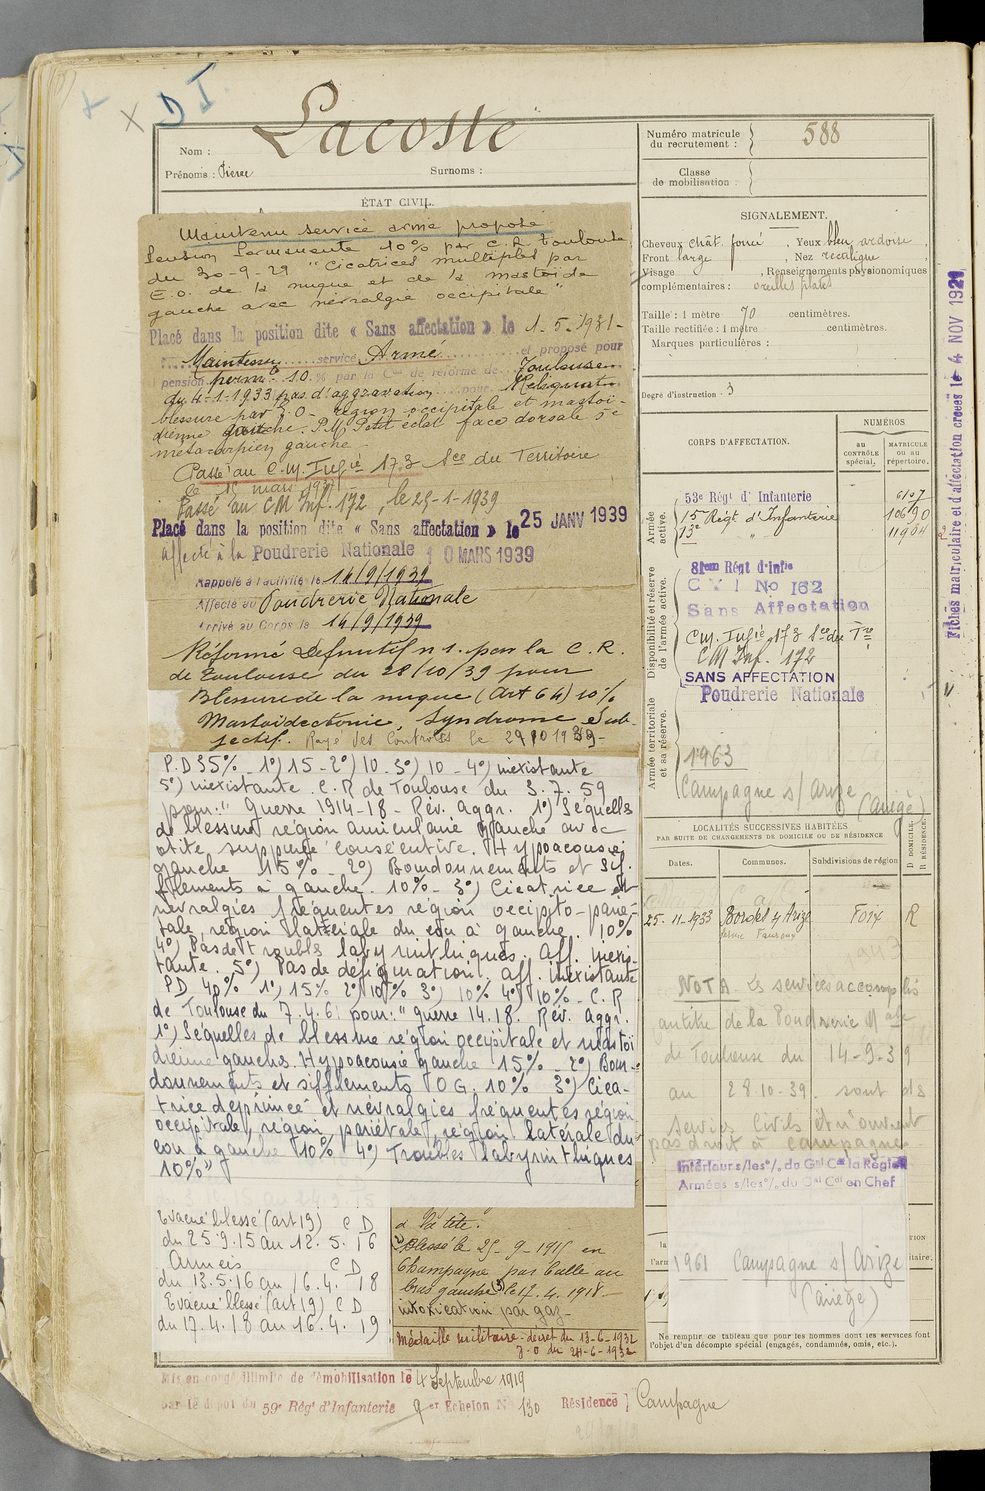 X D I.
Lacoste
Nom :
Prénoms : Pierre
Surnoms :
ÉTAT CIVIL.
Numéro matricule
du recrutement :
588
Classe
de mobilisation :
Maintenu service armé proposé
Pension Permanente 10% par C.R Toulouse
du 30-9-29 "Cicatrices multiples par
E.O. de la nuque et de la mastoïde
gauche avec névralgie occipitale"
Placé dans la position dite « Sans affectation » le 1.5.1931-
Maintenu service Armé et proposé pour
pension perm. 10 % par la Con de réforme de Toulouse
du 4-1-1933 pas d'aggravation pour Reliquats
blessure par E.O- région occipitale et mastoï-
dienne gauche. P.M. Petit éclat face dorsale 5e
métacarpien gauche
Passé au C.M. Infie 173 Sce du Territoire
le 15 mars
Passé au CM Inf. 172, le 25-1-1939
Placé dans la position dite « Sans affectation » le 25 JANV 1939
affecté à la Poudrerie Nationale 10 MARS 1939
Rappelé à l'activité le 14/9/1939
Affecté au Poudrerie Nationale
Arrivé au Corps le 14/9/1939
Réformé Définitif n 1. par la C.R.
de Toulouse du 28/10/39 pour
Blessure de la nuque (Art 64) 10%
Mastoïdectomie, Syndrome Sub-
jectif. Rayé des Contrôles le 29 10 1939-
P.D 35% - 1°) 15 - 2°) 10. 3°) 10 - 4°) inexistante
5°) inexistante. C.R de Toulouse du 3.7.59
pour: "Guerre 1914-18 - Rév. Aggr. 1°) Séquelles
de blessure région auriculaire gauche avec
otite suppurée consécutive. Hypoacousie
gauche 15% - 2°) Bourdonnements et sif-
flements à gauche. 10% - 3°) Cicatrice et
névralgies fréquentes région occipito-parié-
tale, région latérale du cou à gauche. 10%
4°) Pas de troubles labyrinthiques. Aff. inexis-
tante. 5°) Pas de défiguration. Aff. inexistante
PD 40% 1°) 15% 2°) 10% 3°) 10% 4°) 10% - C.R
de Toulouse du 7.4.61 pour: "guerre 14.18. Rév. Aggr.
1°) Séquelles de blessure région occipitale et mastoï
dienne gauches. Hypoacousie gauche 15% - 2°) Bour-
donnements et sifflements OG. 10% 3°) Cica-
trice déprimée et névralgies fréquentes région
occipitale, région pariétale, région latérale du
cou à gauche 10% 4°) Troubles labyrinthiques
10%"
Evacué blessé (art 19) C D
du 25 9.15 au 12.5.16
Armées C D
du 13.5.16 au 16.4.18
Evacué blessé (art 19) C D
du 17.4.18 au 16.4.19
à la tête.
2) Blessé le 25-9-1915 en
Champagne par balle au
bras gauche 3) le 17.4.1918-
intoxication par gaz-
Médaille militaire - décret du 13-6-1932
J.O du 24-6-1932
Mis en congé illimité de démobilisation le 4 Septembre 1919
par le dépôt du 59e Régt d'Infanterie 9 er Echelon No 130 Résidence } Campagne
SIGNALEMENT.
Cheveux chât. foncé , Yeux bleu ardoise ,
Front large , Nez rectiligne
Visage , Renseignements physionomiques
complémentaires : oreilles plates
Taille : 1 mètre 70 centimètres.
Taille rectifiée : 1 mètre centimètres.
Marques particulières :
Degré d'instruction : 3
CORPS D'AFFECTATION.
NUMÉROS
au
CONTRÔLE
spécial.
MATRICULE
ou au
répertoire.
Armée
active.
53e Régt d'Infanterie 6107
15e Régt d'Infanterie 10690
13e " " 11904
Disponibilité et réserve
de l'armée active.
81eme Régt d'Infie
C M I No 162
Sans Affectation
Cm. Infie 173 Sce du Tre
CM Inf. 172
SANS AFFECTATION
Poudrerie Nationale
Armée territoriale
et sa réserve.
1963
Campagne s/ Arize
(Ariège)
LOCALITÉS SUCCESSIVES HABITÉES
PAR SUITE DE CHANGEMENTS DE DOMICILE OU DE RÉSIDENCE
D DOMICILE.
R RÉSIDENCE.
Dates.
Communes.
Subdivisions de région
25-11-1933 Bordes s/ Arize Foix R
NOTA. Les services accomplis
au titre de la Poudrerie Nale
de Toulouse du 14-9-39
au 28 10-39. sont des
Services Civils et n'ouvrent
pas droit à campagne
Intérieur s/les o/ de Gal Ct la Région
Armées s/les o/ du Gal Cdt en Chef
1961 Campagne s/ Arize
(Ariège)
Ne remplir ce tableau que pour les hommes dont les services font
l'objet d'un décompte spécial (engagés, condamnés, omis, etc.).
Fiches matriculaire et d'affectation créées le 4 NOV 1921